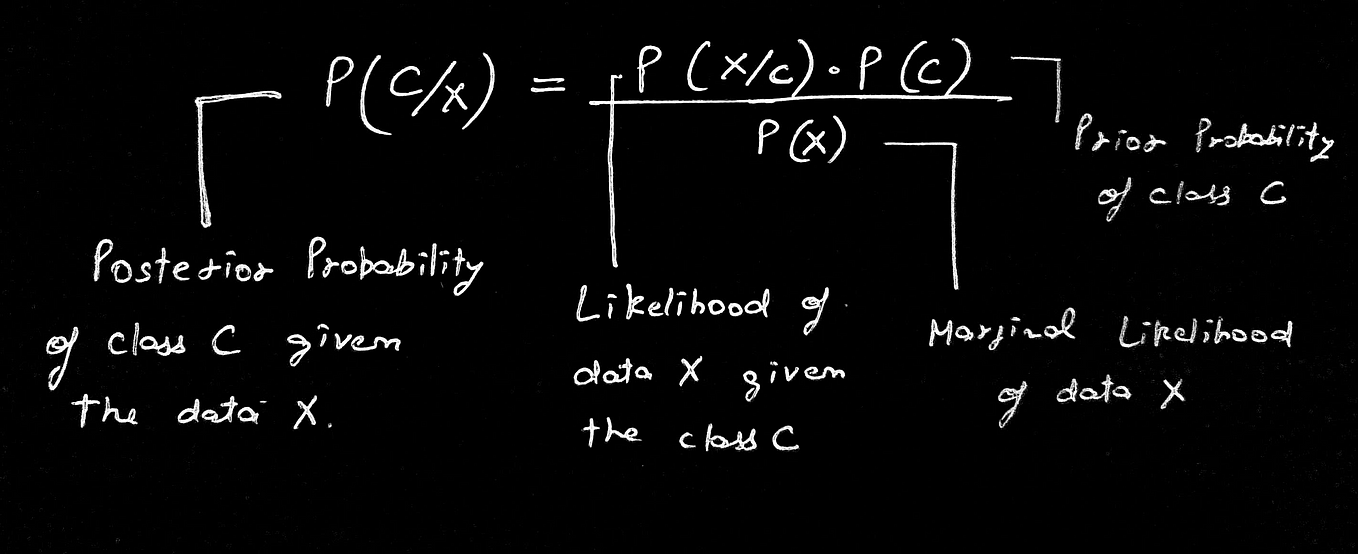 P(C/x) = P(X/c).P(C)
P(X)
Prior Probability
of class C
Posterior Probability
of class C given
the data X.
Likelihood of
data X given
the class C
Marginal Likelihood
of data X